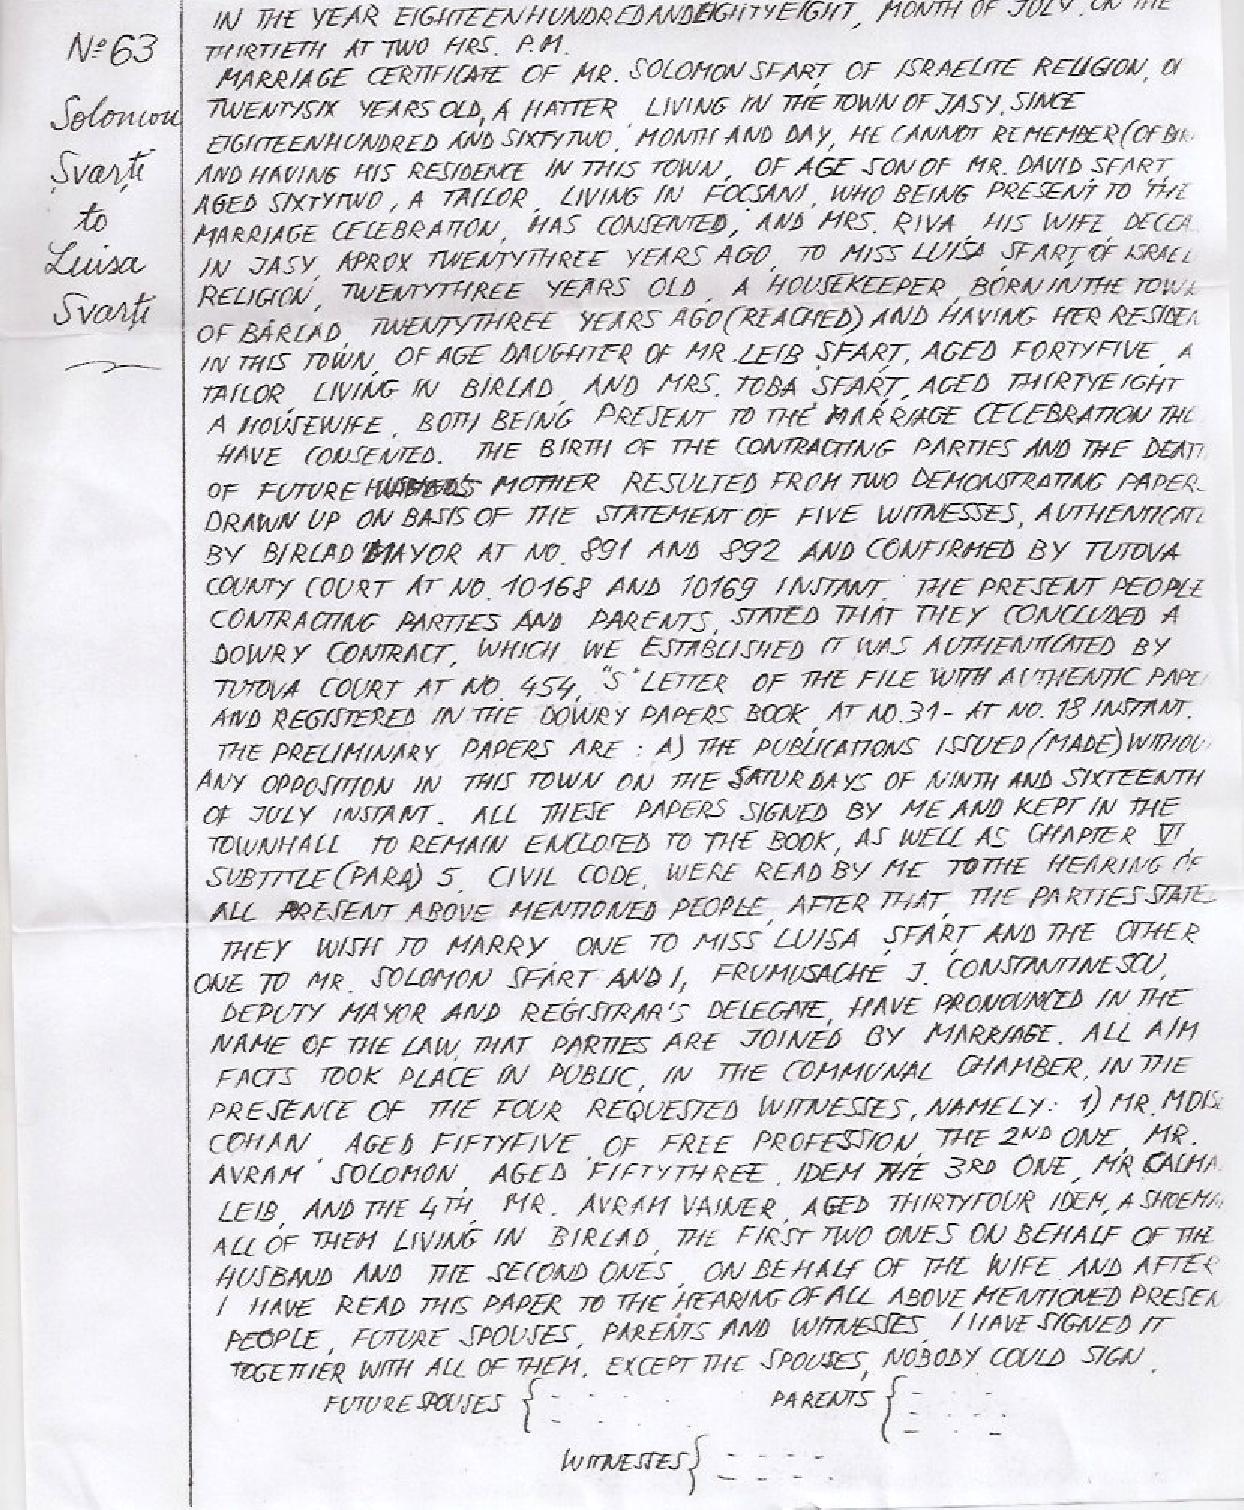 IN THE YEAR EIGHTEENHUNDREDANDEIGHTYEIGHT, MONTH OF JULY. ON THE
THIRTIETH AT TWO HRS. P.M.
MARRIAGE CERTIFICATE OF MR. SOLOMON SFART, OF ISRAELITE RELIGION, OF
TWENTYSIX YEARS OLD, A HATTER LIVING IN THE TOWN OF JASY, SINCE
EIGHTEENHUNDRED AND SIXTYTWO, MONTH AND DAY, HE CANNOT REMEMBER (OF BIR
AND HAVING HIS RESIDENCE IN THIS TOWN, OF AGE SON OF MR. DAVID SFART,
AGED SIXTYTWO, A TAILOR, LIVING IN FOCSANI, WHO BEING PRESENT TO THE
MARRIAGE CELEBRATION, HAS CONSENTED, AND MRS. RIVA, HIS WIFE, DECEA
IN JASY, APROX TWENTYTHREE YEARS AGO, TO MISS LUISA SFART, OF ISRAEL
RELIGION, TWENTYTHREE YEARS OLD, A HOUSEKEEPER, BORN IN THE TOWN
OF BÂRLAD, TWENTYTHREE YEARS AGO (REACHED) AND HAVING HER RESIDEN
IN THIS TOWN, OF AGE DAUGHTER OF MR. LEIB SFART, AGED FORTYFIVE, A
TAILOR, LIVING IN BIRLAD, AND MRS. TOBA SFART, AGED THIRTYEIGHT
A HOUSEWIFE, BOTH BEING PRESENT TO THE MARRIAGE CELEBRATION THE
HAVE CONSENTED. THE BIRTH OF THE CONTRACTING PARTIES AND THE DEATH
OF FUTURE HUSBAND'S MOTHER RESULTED FROM TWO DEMONSTRATING PAPERS
DRAWN UP ON BASIS OF THE STATEMENT OF FIVE WITNESSES, AUTHENTICATE
BY BIRLAD MAYOR AT NO. 891 AND 892 AND CONFIRMED BY TUTOVA
COUNTY COURT AT NO. 10168 AND 10169 INSTANT. THE PRESENT PEOPLE
CONTRACTING PARTIES AND PARENTS, STATED THAT THEY CONCLUDED A
DOWRY CONTRACT, WHICH WE ESTABLISHED IT WAS AUTHENTICATED BY
TUTOVA COURT AT NO. 454, "S" LETTER OF THE FILE WITH AUTHENTIC PAPE
AND REGISTERED IN THE DOWRY PAPERS BOOK, AT NO.31 - AT NO. 18 INSTANT.
THE PRELIMINARY PAPERS ARE : A) THE PUBLICATIONS ISSUED (MADE) WITHOU
ANY OPPOSITION IN THIS TOWN ON THE SATURDAYS OF NINTH AND SIXTEENTH
OF JULY INSTANT. ALL THESE PAPERS SIGNED BY ME AND KEPT IN THE
TOWNHALL TO REMAIN ENCLOSED TO THE BOOK, AS WELL AS CHAPTER VI,
SUBTITLE (PARA) 5, CIVIL CODE, WERE READ BY ME TO THE HEARING OF
ALL PRESENT ABOVE MENTIONED PEOPLE, AFTER THAT, THE PARTIES STATE
THEY WISH TO MARRY ONE TO MISS LUISA SFART AND THE OTHER
ONE TO MR. SOLOMON SFART AND I, FRUMUSACHE J. CONSTANTINESCU,
DEPUTY MAYOR AND REGISTRAR'S DELEGATE, HAVE PRONOUNCED IN THE
NAME OF THE LAW, THAT PARTIES ARE JOINED BY MARRIAGE. ALL A/M
FACTS TOOK PLACE IN PUBLIC, IN THE COMMUNAL CHAMBER, IN THE
PRESENCE OF THE FOUR REQUESTED WITNESSES, NAMELY: 1) MR. MOISE
COHAN, AGED FIFTYFIVE, OF FREE PROFESSION, THE 2ND ONE, MR.
AVRAM SOLOMON, AGED FIFTYTHREE, IDEM THE 3RD ONE, MR CALMA
LEIB, AND THE 4TH, MR. AVRAM VAINER, AGED THIRTYFOUR IDEM, A SHOEMA
ALL OF THEM LIVING IN BIRLAD, THE FIRST TWO ONES ON BEHALF OF THE
HUSBAND AND THE SECOND ONES, ON BEHALF OF THE WIFE AND AFTER
I HAVE READ THIS PAPER TO THE HEARING OF ALL ABOVE MENTIONED PRESEN
PEOPLE, FUTURE SPOUSES, PARENTS AND WITNESSES, I HAVE SIGNED IT
TOGETHER WITH ALL OF THEM, EXCEPT THE SPOUSES, NOBODY COULD SIGN.
FUTURE SPOUSES { PARENTS {
WITNESSES {
No 63
Solomon
Svarţi
to
Luisa
Svarţi